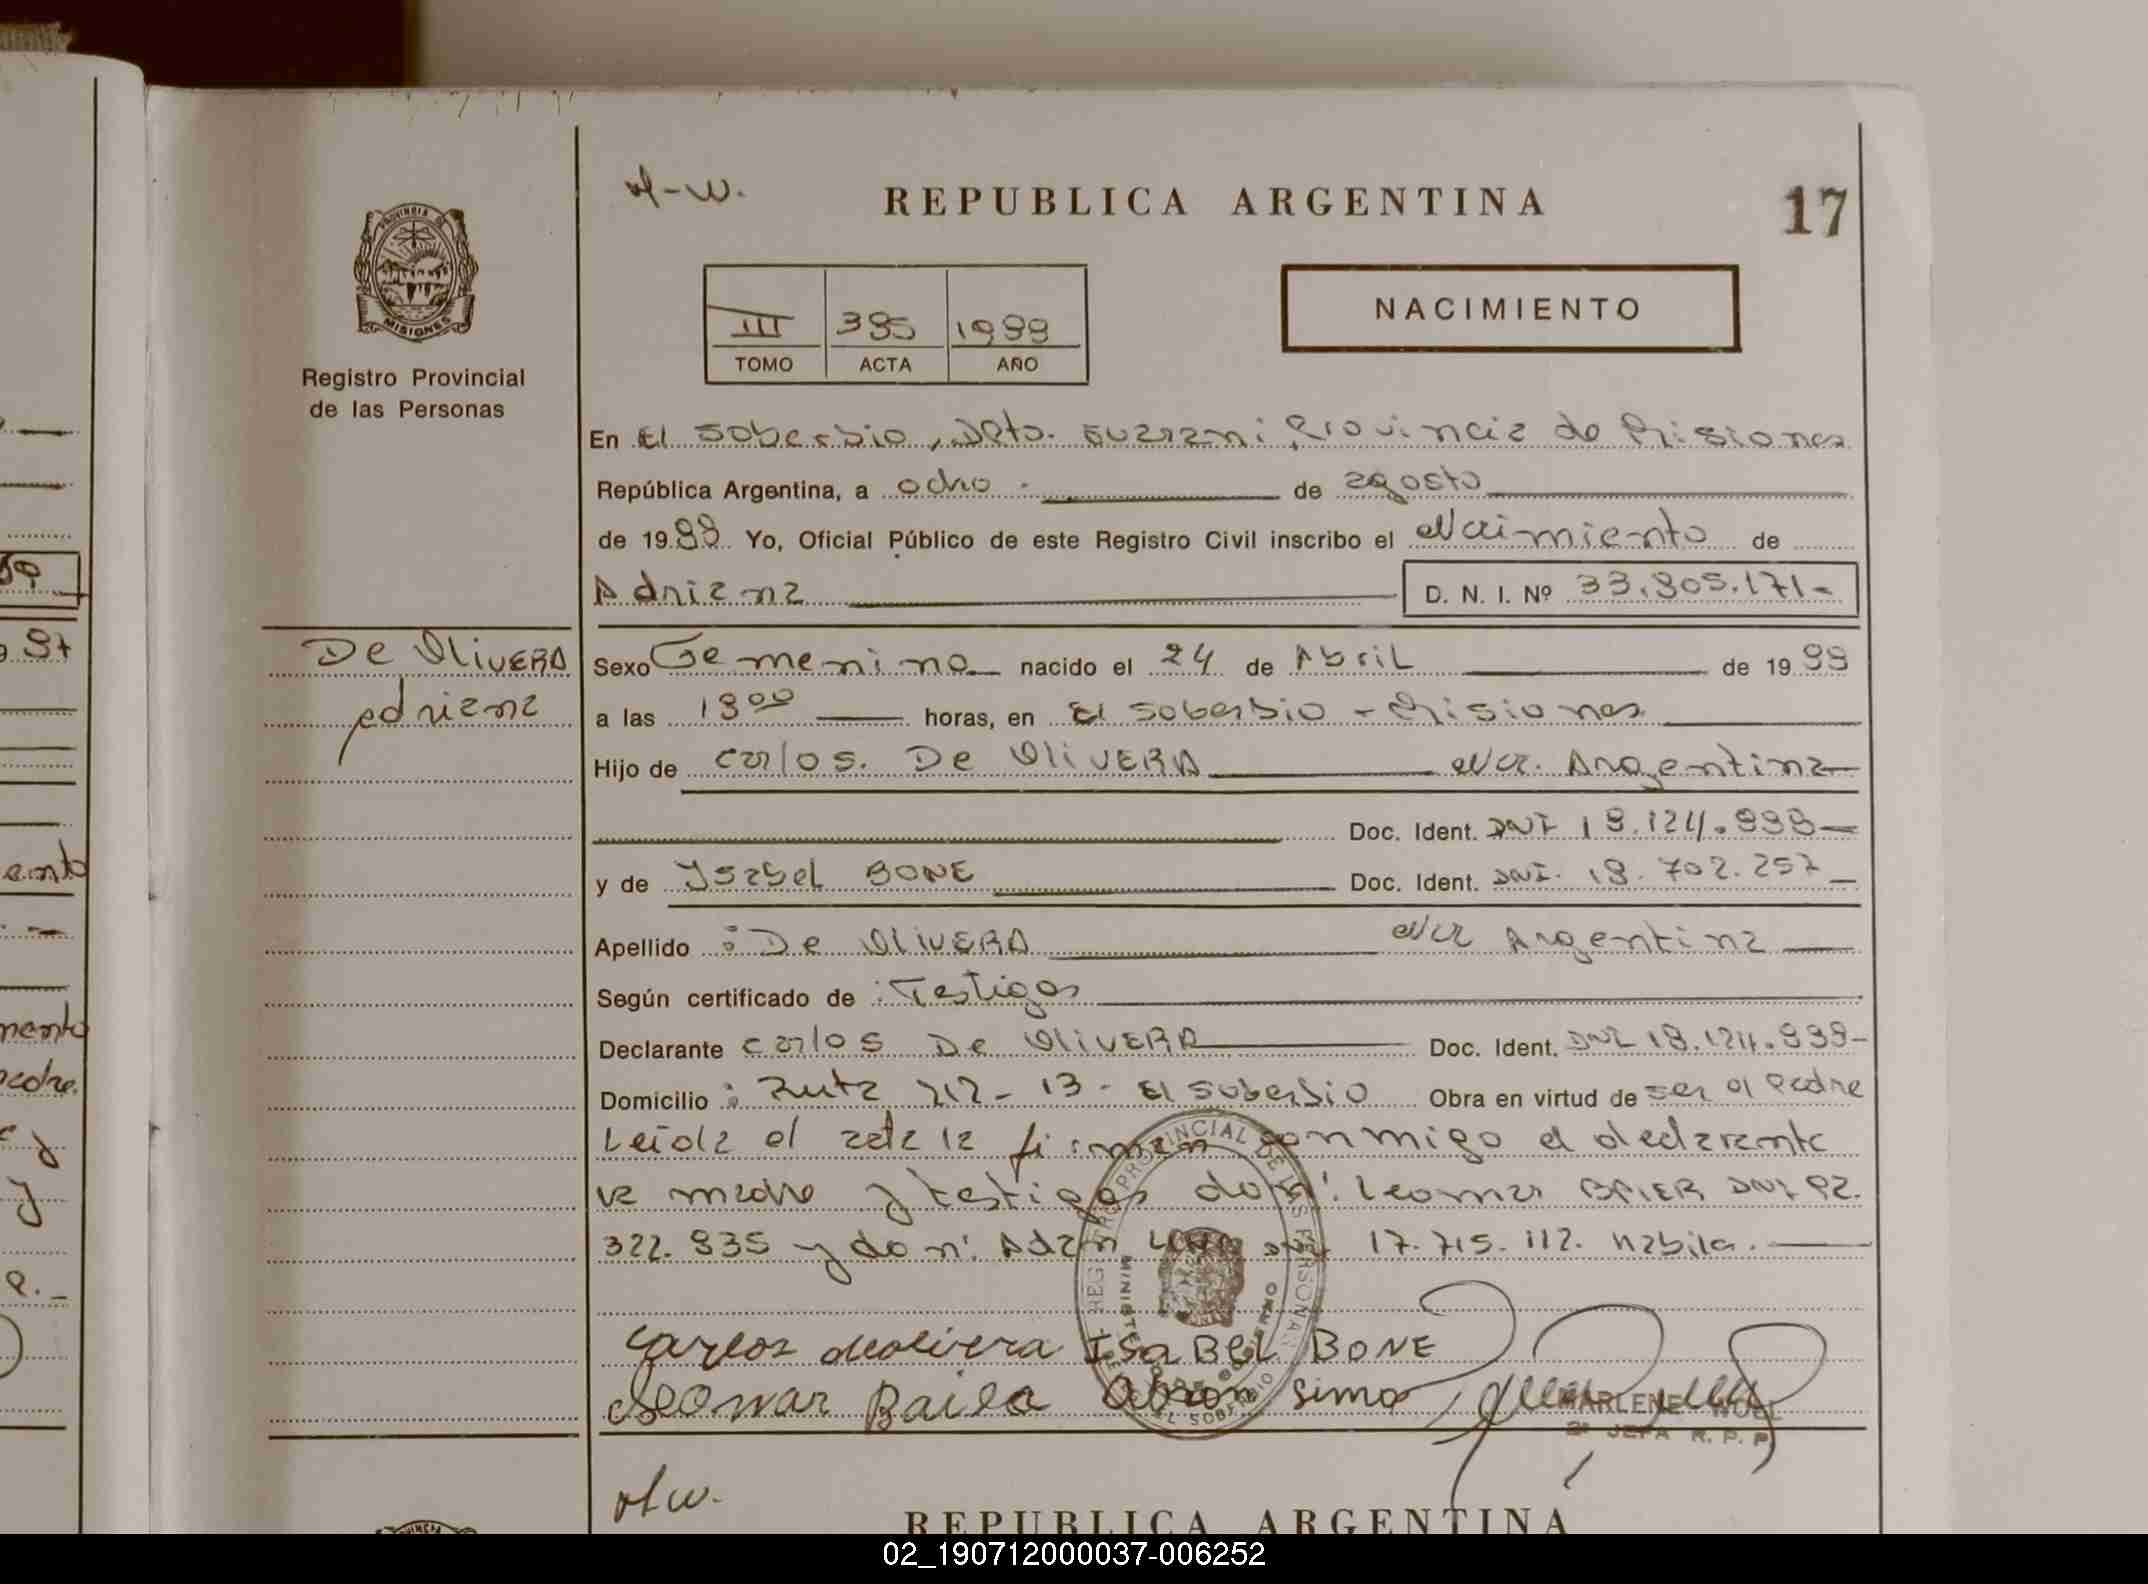 REPUBLICA ARGENTINA
17
PROVINCIA DE
MISIONES
Registro Provincial
de las Personas
III 395 1999
TOMO ACTA AÑO
NACIMIENTO
En El Soberbio, Dpto. Guarani Provincia de Misiones
República Argentina, a ocho de agosto
de 19 Yo, Oficial Público de este Registro Civil inscribo el Nacimiento de
Adriana D. N. I. Nº 33.905.171-
De OliVERA
Adriana
Sexo Femenino nacido el 24 de Abril de 19
a las horas, en El Soberbio - Misiones
Hijo de Carlos. De OliVERA Nac. Argentina
Doc. Ident. DNI
y de Ysabel BONE Doc. Ident. DNI. 702.257
Apellido : De OliVERA Nac Argentina
Según certificado de : Testigos
Declarante Carlos De OliVERA Doc. Ident. DNI
Domicilio : Ruta 212 - 13 - El Soberbio Obra en virtud de ser el Padre
Leida el acta la firman conmigo el declarante
la madre y testigos don: Leomar BAIER DNI 92.
322.935 y don: Adan DNI 17.715.112. habila.
Carlos deolivera ISaBEL BONE
Leomar
REGISTRO PROVINCIAL DE LAS PERSONAS
MINISTERIO DE GOBIERNO
EL SOBERBIO
MARLENE
2ª JEFA R. P. P.
REPUBLICA ARGENTINA
02_190712000037-006252